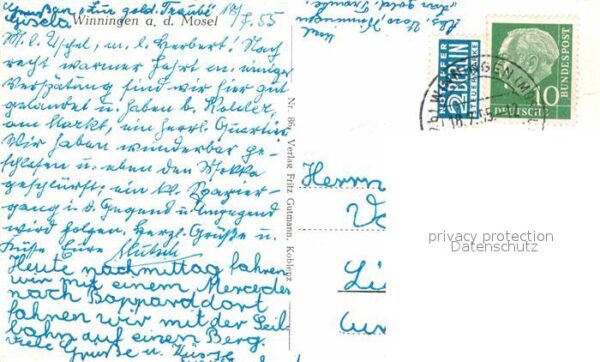 Gasthaus "Zum gold. Traube" 18/7.55
Gisela
Winningen a. d. Mosel
M. l. Uschel, m. l. Herbert! Nach
recht warmer Fahrt m. einiger
Verspätung sind wir hier gut
gelandet u. haben b. Kohler,
am Markt, ein herrl. Quartier
Wir haben wunderbar ge-
schlafen u. eben den Mokka
geschlürft; ein kl. Spazier-
gang i. d. Gegend u. Umgegend
wird folgen. Herzl. Grüße u.
Küsse Eure Mutsch
Heute nachmittag fahren
wir mit einem Mercedes
nach Boppard dort
fahren wir mit der Seil
bahn auf einen Berg.
Viele Grüße u. Küsse
Nr. 86 Verlag Fritz Gutmann, Koblenz
Abs.
Winningen
NOTOPFER
2 BERLIN
STEUERMARKE
WINNINGEN (MOSEL)
18.7.55
DEUTSCHE
BUNDESPOST
10
Herrn
privacy protection
Datenschutz